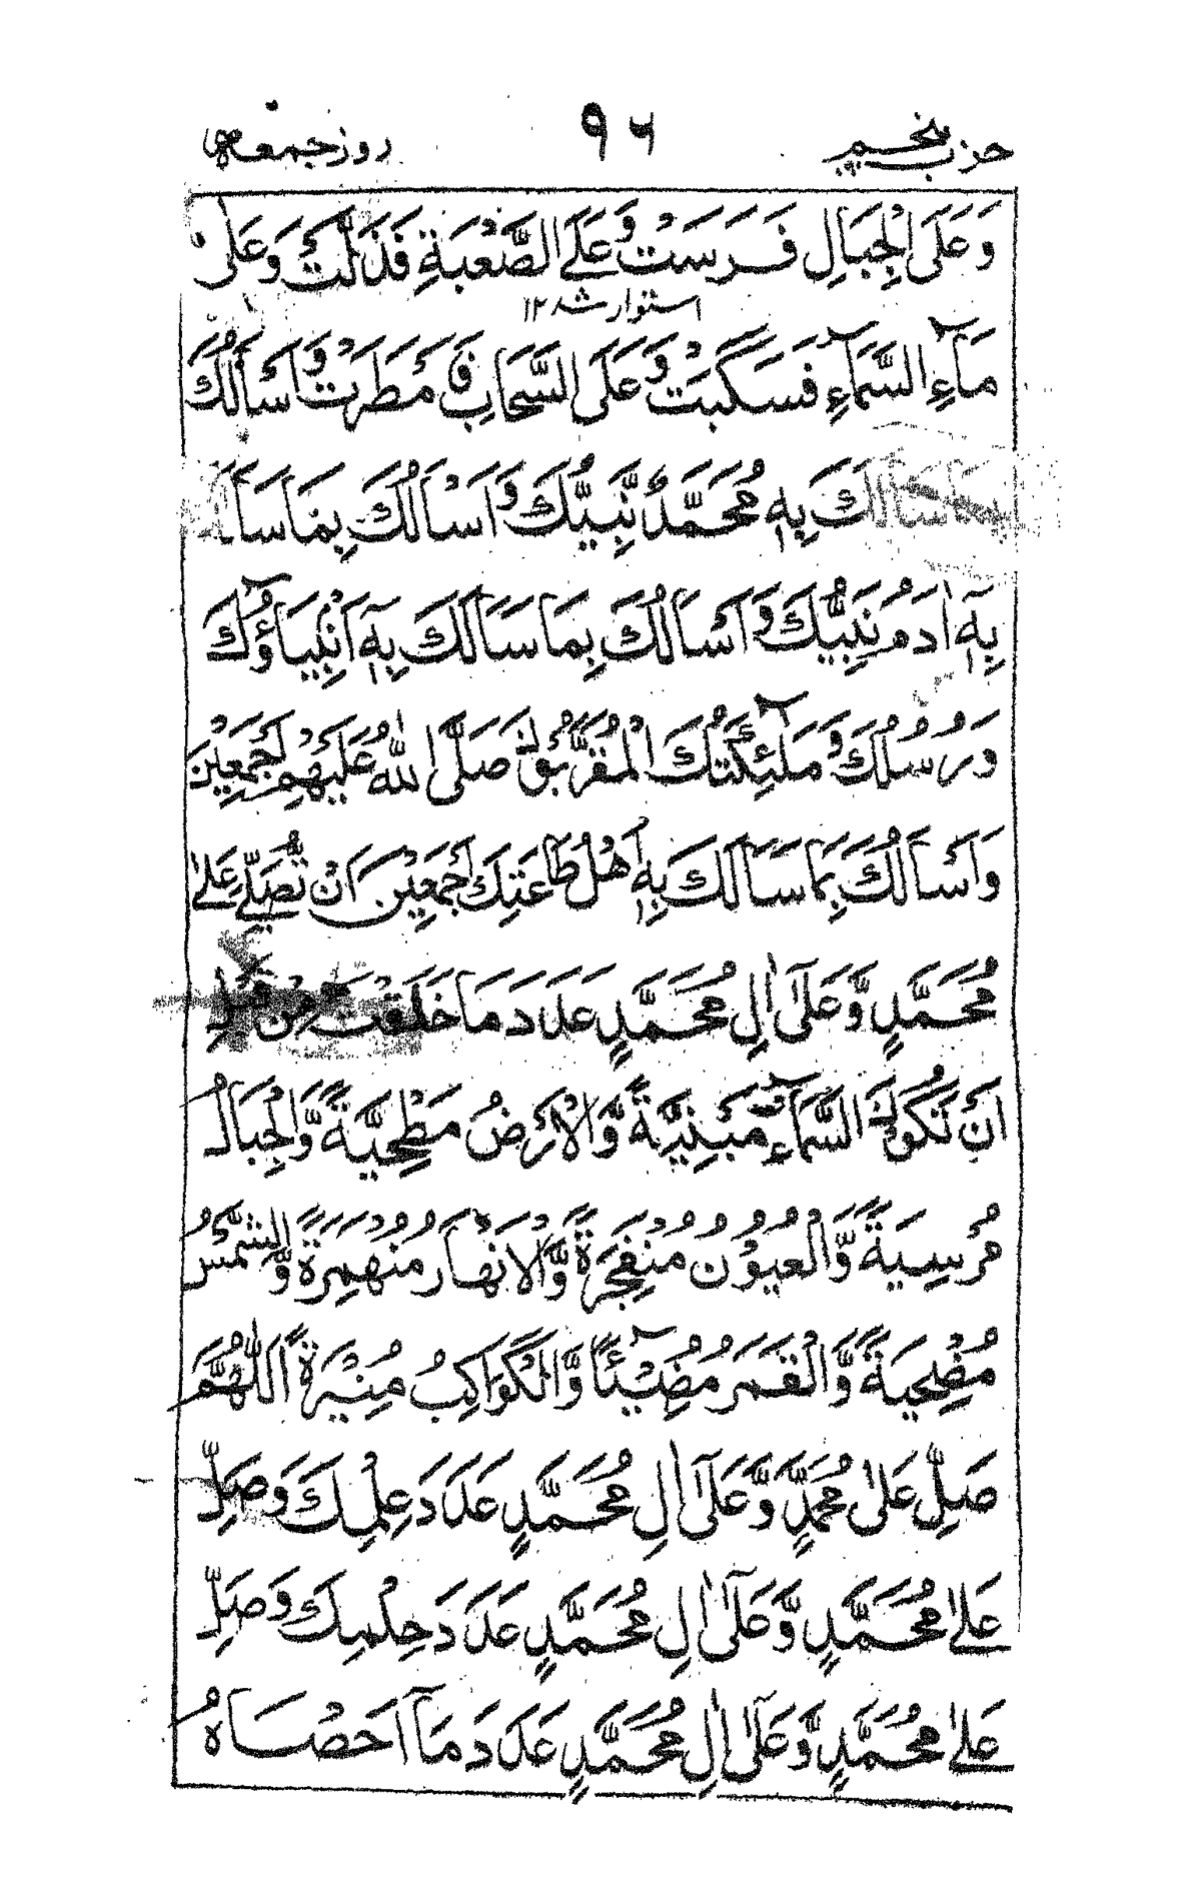 حزب پنجم ٩٦ روز جمعہ
وَعَلَى الْجِبَالِ فَرَسَتْ وَعَلَى الصَّعْبَةِ فَذَلَّتْ وَعَلٰى
مَآءِ السَّمَآءِ فَسَكَبَتْ وَعَلَى السَّحَابِ فَاَمْطَرَتْ وَاَسْأَلُكَ
بِمَا سَاَلَكَ بِهٖ مُحَمَّدٌ نَّبِيُّكَ وَاَسْاَلُكَ بِمَا سَاَلَكَ
بِهٖٓ اٰدَمُ نَبِيُّكَ وَاَسْاَلُكَ بِمَا سَاَلَكَ بِهٖٓ اَنْبِيَاۤؤُكَ
وَرُسُلُكَ وَمَلٰۤئِكَتُكَ الْمُقَرَّبُوْنَ صَلَّى اللّٰهُ عَلَيْهِمْ اَجْمَعِيْنَ
وَاَسْاَلُكَ بِمَا سَاَلَكَ بِهٖ اَهْلُ طَاعَتِكَ اَجْمَعِيْنَ اَنْ تُصَلِّيَ عَلٰى
مُحَمَّدٍ وَّعَلٰۤى اٰلِ مُحَمَّدٍ عَدَدَ مَا خَلَقْتَ مِنْ قَبْلِ
اَنْ تَكُوْنَ السَّمَآءُ مَبْنِيَّةً وَّالْاَرْضُ مَطْحِيَّةً وَّالْجِبَالُ
مُرْسِيَةً وَّالْعُيُوْنُ مُنْفَجِرَةً وَّالْاَنْهَارُ مُنْهَمِرَةً وَّالشَّمْسُ
مُضْحِيَةً وَّالْقَمَرُ مُضِيْۤئًا وَّالْكَوَاكِبُ مُنِيْرَةً اَللّٰهُمَّ
صَلِّ عَلٰى مُحَمَّدٍ وَّعَلٰۤى اٰلِ مُحَمَّدٍ عَدَدَ عِلْمِكَ وَصَلِّ
عَلٰى مُحَمَّدٍ وَّعَلٰۤى اٰلِ مُحَمَّدٍ عَدَدَ حِلْمِكَ وَصَلِّ
عَلٰى مُحَمَّدٍ وَّعَلٰۤى اٰلِ مُحَمَّدٍ عَدَدَ مَآ اَحْصَاهُ